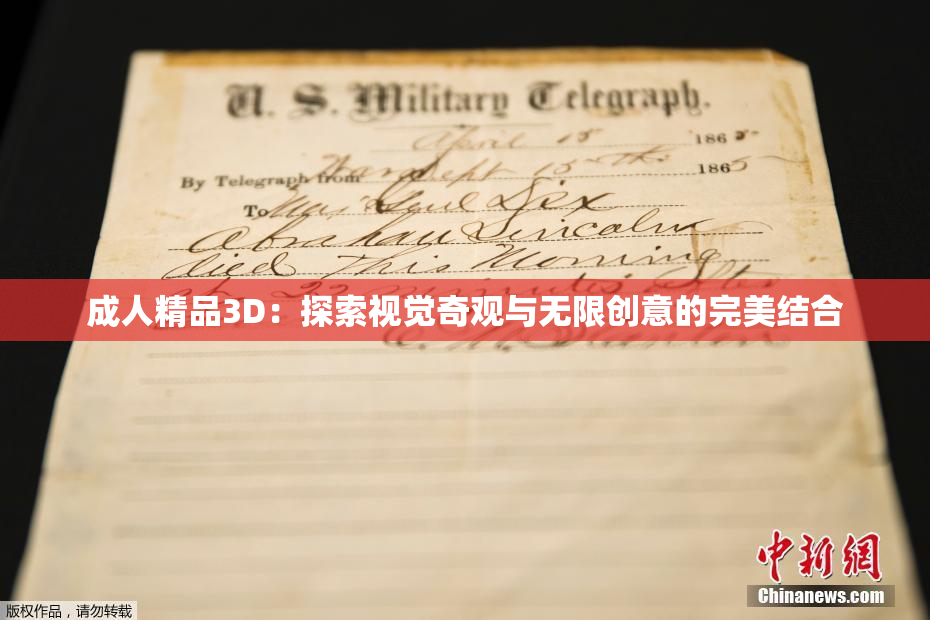 U. S. Military Telegraph.
April 15 1865
By Telegraph from War Dept 15th 1865
To Maj Genl Dix
Abraham Lincoln
died This Morning
at 22 minutes after
成人精品3D：探索视觉奇观与无限创意的完美结合
E. M. Stanton
中新网
Chinanews.com
版权作品，请勿转载